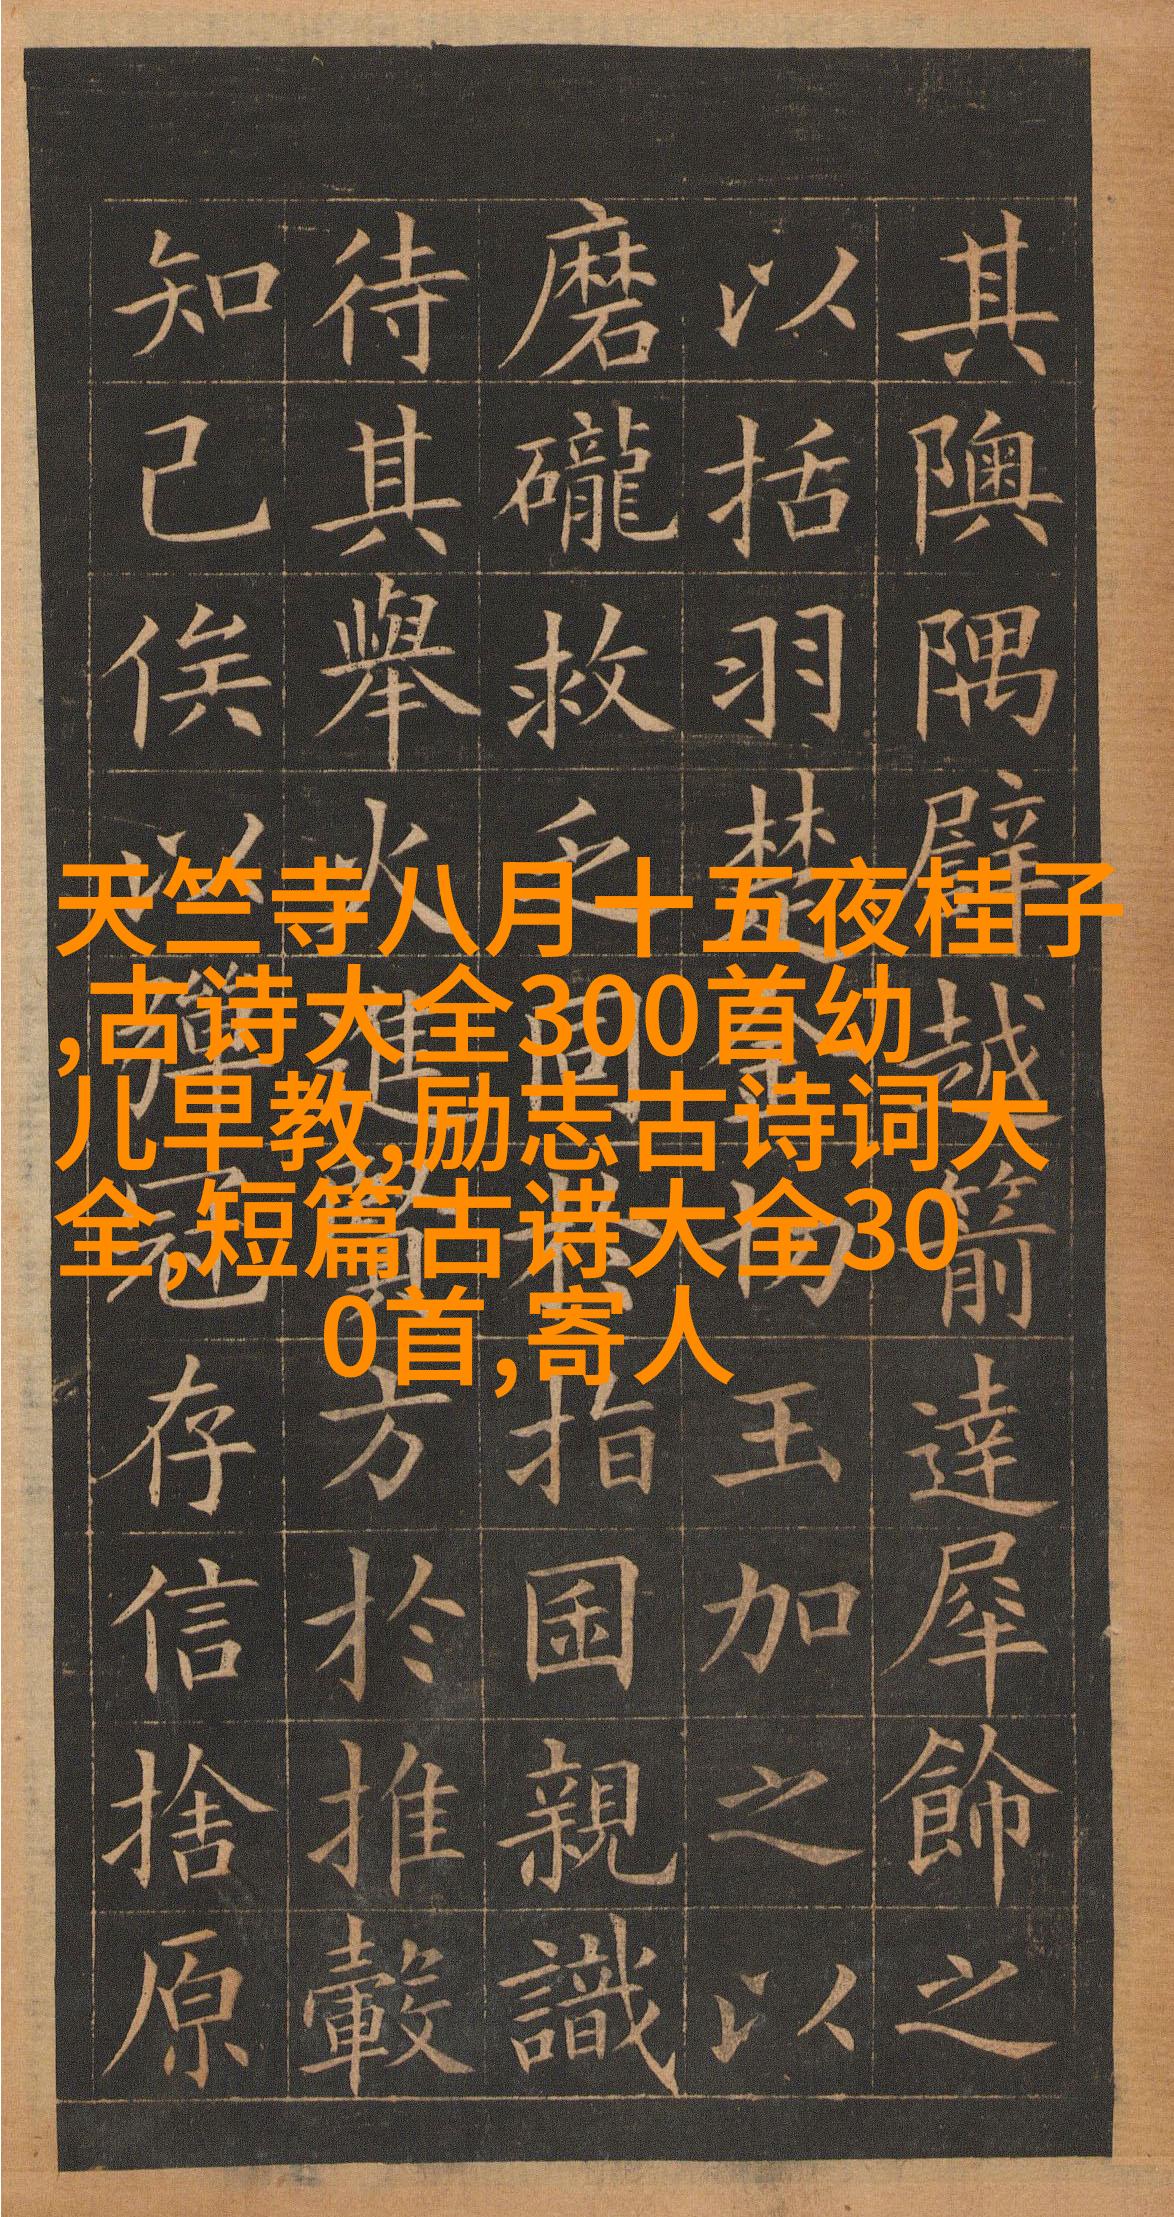 其隩隅越箭達犀飾之
以括羽楚金王加之以
磨礱救乏同於指囷親識
待其舉火進賢方於推轂
知己俟以彈冠存信捨原
天竺寺八月十五夜桂子
,古诗大全300首幼
儿早教,励志古诗词大
全,短篇古诗大全30
0首,寄人